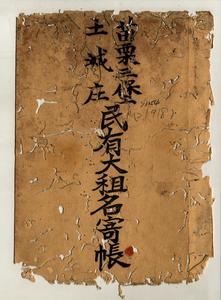 苗栗三堡
土城庄
民有大租名寄帳